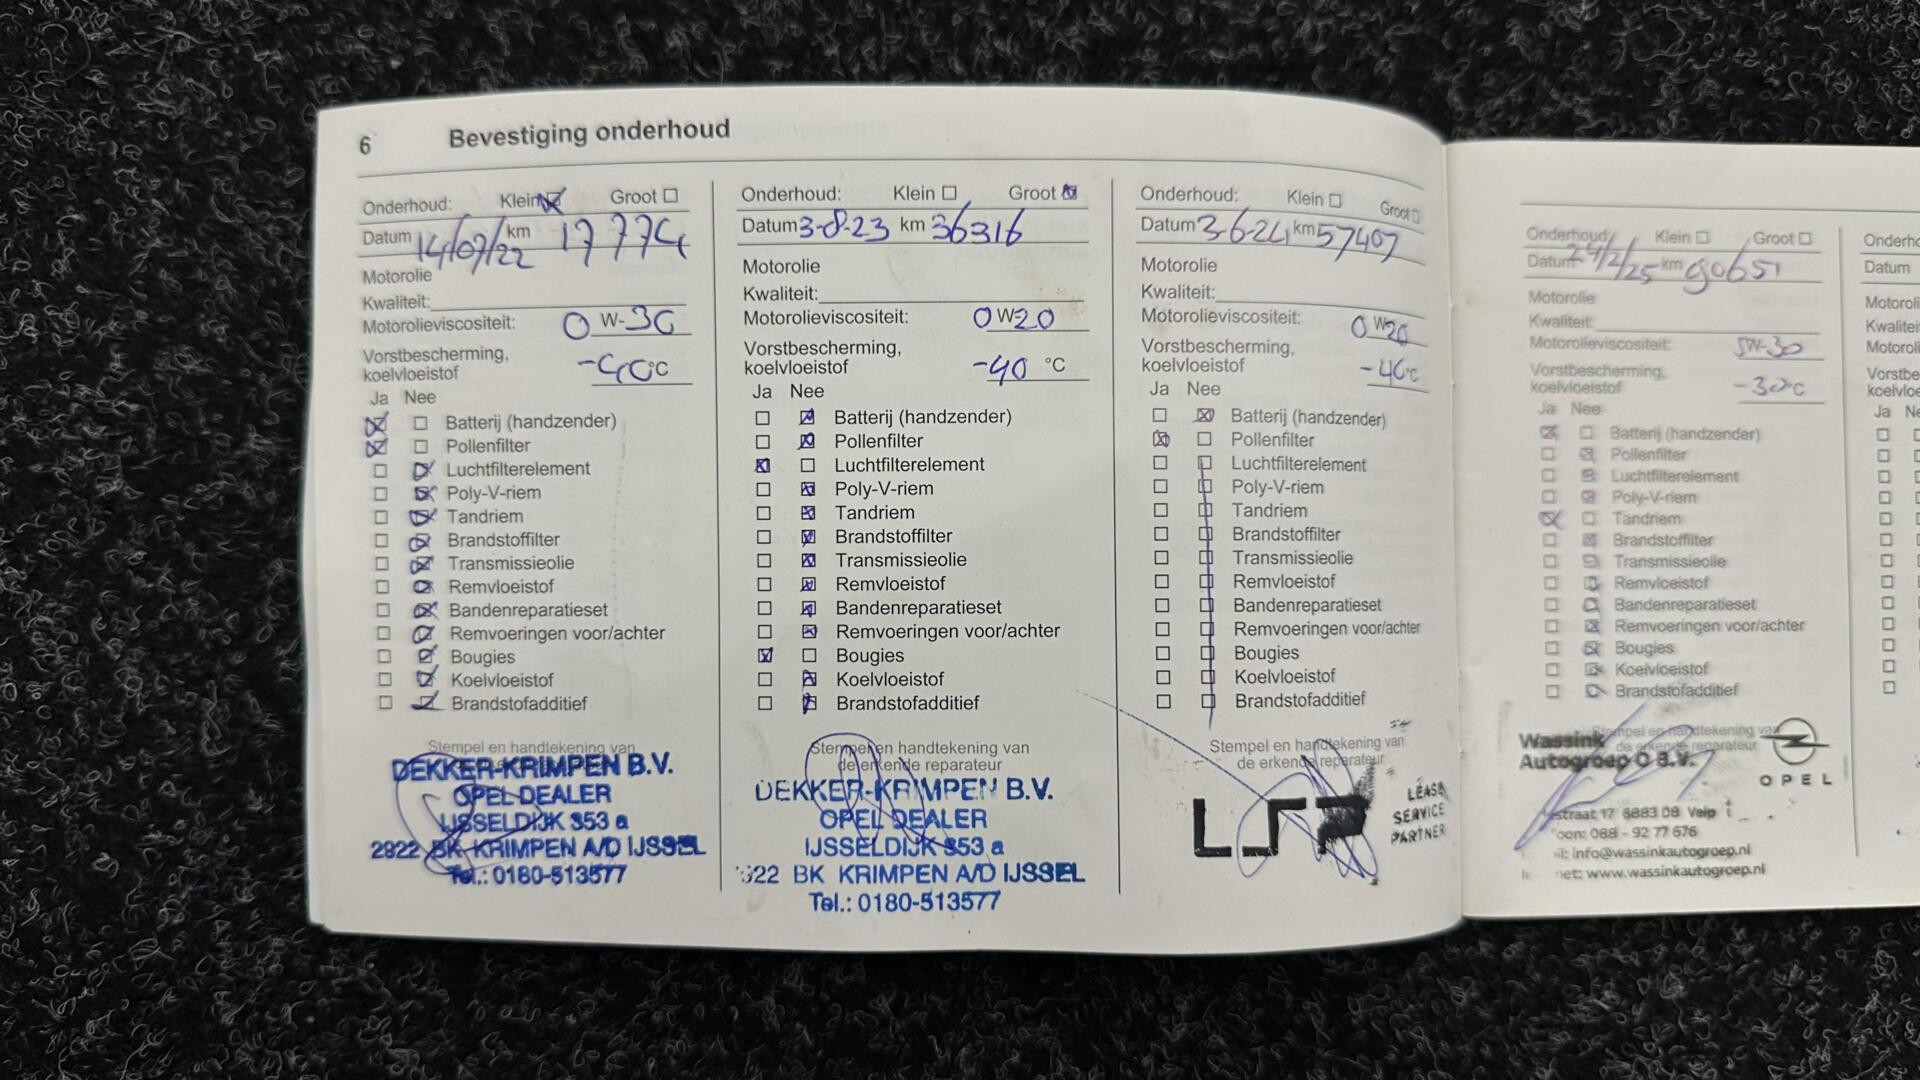 6 Bevestiging onderhoud
Onderhoud: Klein Groot
Datum 14/07/22 km 17774
Motorolie
Kwaliteit:
Motorolieviscositeit: 0 W-30
Vorstbescherming,
koelvloeistof -40°C
Ja Nee
Batterij (handzender)
Pollenfilter
Luchtfilterelement
Poly-V-riem
Tandriem
Brandstoffilter
Transmissieolie
Remvloeistof
Bandenreparatieset
Remvoeringen voor/achter
Bougies
Koelvloeistof
Brandstofadditief
Stempel en handtekening van
DEKKER-KRIMPEN B.V.
OPEL DEALER
IJSSELDIJK 353 a
2922 BK KRIMPEN A/D IJSSEL
Tel.: 0180-513577
Onderhoud: Klein Groot
Datum 3-8-23 km 36316
Motorolie
Kwaliteit:
Motorolieviscositeit: 0 W 20
Vorstbescherming,
koelvloeistof -40 °C
Ja Nee
Batterij (handzender)
Pollenfilter
Luchtfilterelement
Poly-V-riem
Tandriem
Brandstoffilter
Transmissieolie
Remvloeistof
Bandenreparatieset
Remvoeringen voor/achter
Bougies
Koelvloeistof
Brandstofadditief
Stempel en handtekening van
de erkende reparateur
DEKKER-KRIMPEN B.V.
OPEL DEALER
IJSSELDIJK 353 a
922 BK KRIMPEN A/D IJSSEL
Tel.: 0180-513577
Onderhoud: Klein Groot
Datum 3-6-24 km 57407
Motorolie
Kwaliteit:
Motorolieviscositeit: 0 W 20
Vorstbescherming,
koelvloeistof -40°C
Ja Nee
Batterij (handzender)
Pollenfilter
Luchtfilterelement
Poly-V-riem
Tandriem
Brandstoffilter
Transmissieolie
Remvloeistof
Bandenreparatieset
Remvoeringen voor/achter
Bougies
Koelvloeistof
Brandstofadditief
Stempel en handtekening van
de erkende reparateur
LSP
LEASE
SERVICE
PARTNER
Onderhoud: Klein Groot
Datum 24/2/25 km 90651
Motorolie
Kwaliteit:
Motorolieviscositeit: 5W-30
Vorstbescherming,
koelvloeistof -30°C
Ja Nee
Batterij (handzender)
Pollenfilter
Luchtfilterelement
Poly-V-riem
Tandriem
Brandstoffilter
Transmissieolie
Remvloeistof
Bandenreparatieset
Remvoeringen voor/achter
Bougies
Koelvloeistof
Brandstofadditief
Stempel en handtekening van
de erkende reparateur
Wassink
Autogroep O B.V.
OPEL
straat 17 6883 DB Velp
oon: 088 - 92 77 676
il: info@wassinkautogroep.nl
net: www.wassinkautogroep.nl
Onderho
Datum
Motoroli
Kwalitei
Motoroli
Vorstbe
koelvloe
Ja Ne